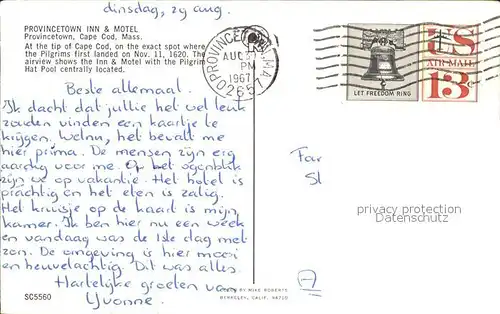 dinsdag, 29 aug.
PROVINCETOWN INN & MOTEL
Provincetown, Cape Cod, Mass.
At the tip of Cape Cod, on the exact spot where
the Pilgrims first landed on Nov. 11, 1620. The
airview shows the Inn & Motel with the Pilgrim
Hat Pool centrally located.
PROVINCETOWN, MA
AUG 31
PM
1967
02657
LET FREEDOM RING
US
AIR MAIL
13c
Beste allemaal.
Ik dacht dat jullie het wel leuk
zouden vinden een kaartje te
krijgen. Welnu, het bevalt me
hier prima. De mensen zijn erg
aardig voor me. Op het ogenblik
zijn we op vakantie. Het hotel is
prachtig en het eten is zalig.
Het kruisje op de kaart is mijn
kamer. Ik ben hier nu een week
en vandaag was de 1ste dag met
zon. De omgeving is hier mooi
en heuvelachtig. Dit was alles.
Hartelijke groeten van
Yvonne.
Far
St
privacy protection
Datenschutz
SC5560
PHOTO BY MIKE ROBERTS
BERKELEY, CALIF. 94710
A